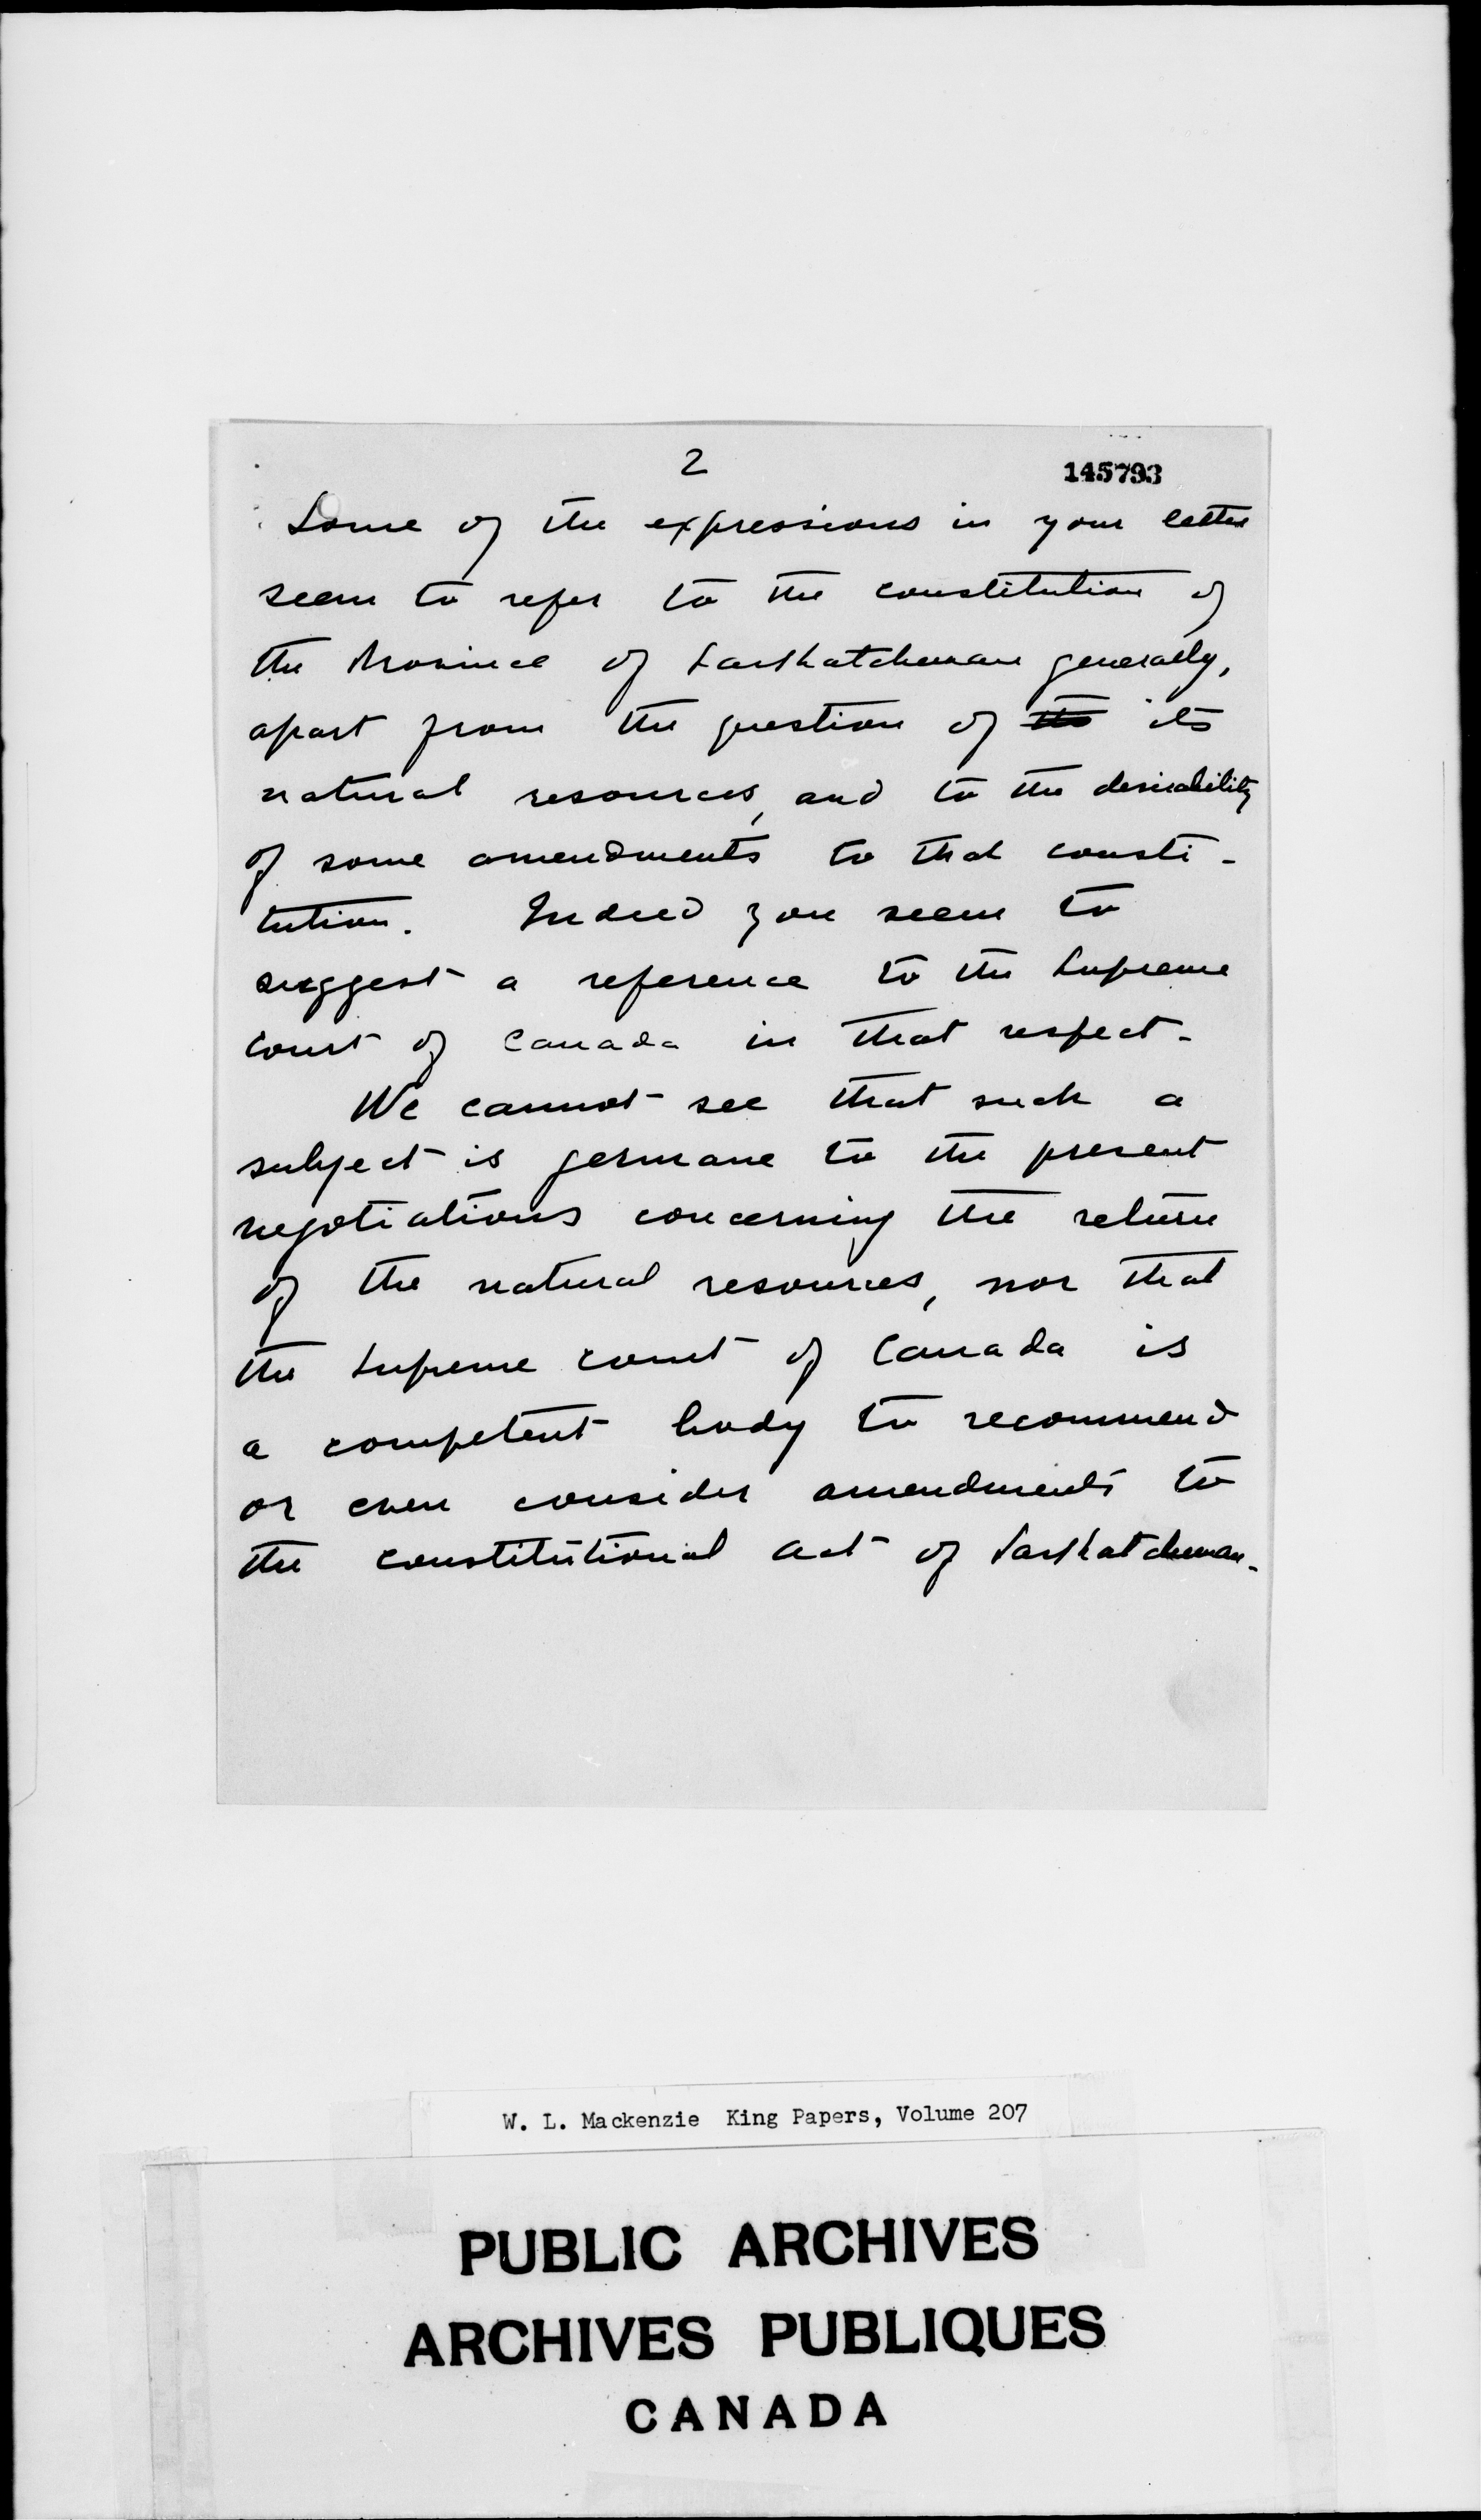 2
145793
Some of the expressions in your letter
seem to refer to the constitution of
the Province of Saskatchewan generally,
apart from the question of its its
natural resources, and to the desirability
of some amendments to that consti-
tution. Indeed you seem to
suggest a reference to the Supreme
Court of Canada in that respect.
We cannot see that such a
subject is germane to the present
negotiations concerning the return
of the natural resources, nor that
the Supreme Court of Canada is
a competent body to recommend
or even consider amendments to
the constitutional act of Saskatchewan.
W. L. Mackenzie King Papers, Volume 207
PUBLIC ARCHIVES
ARCHIVES PUBLIQUES
CANADA